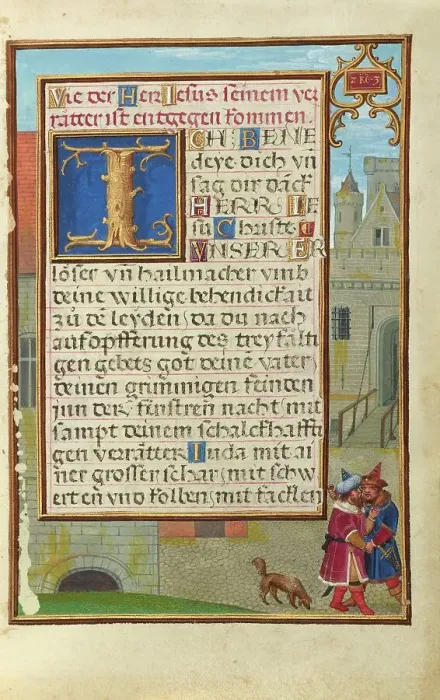 z RG 3
Wie der Her Jesus seinem ver
rätter ist entgegen kommen.
ICH BENE
deye dich vn̄
sag dir dāck
HERR IE
su Christe
VNSER ER
löser vn̄ hailmacher vmb
deine willige behendickait
zů dē leyden, da du nach
aufopfferung des treyfälti
gen gebets got deinē vater,
deinen grimmigen feinden
inn der finstren nacht, mit
sampt deinem schalckhaffti
gen verrätter Iuda mit ai
ner grosser schar, mit schw
erten vnd kolben, mit facklen